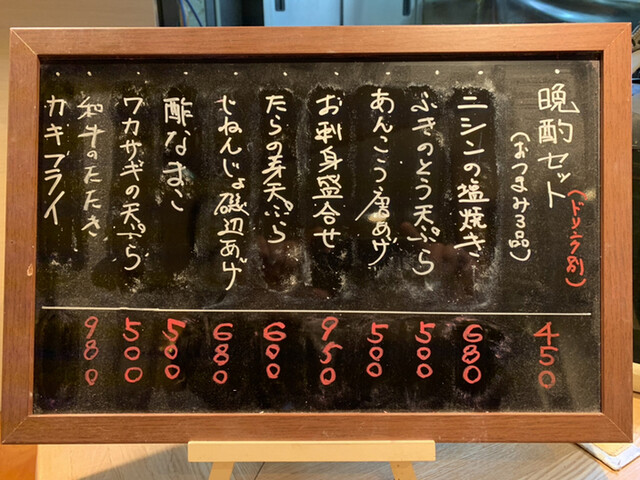 晩酌セット
(ドリンク別)
(おつまみ3品)
450
ニシンの塩焼き
680
ふきのとう天ぷら
500
あんこう唐あげ
500
お刺身盛合せ
950
たらの芽天ぷら
600
じねんじょ磯辺あげ
680
酢なまこ
500
ワカサギの天ぷら
500
和牛のたたき
980
カキフライ